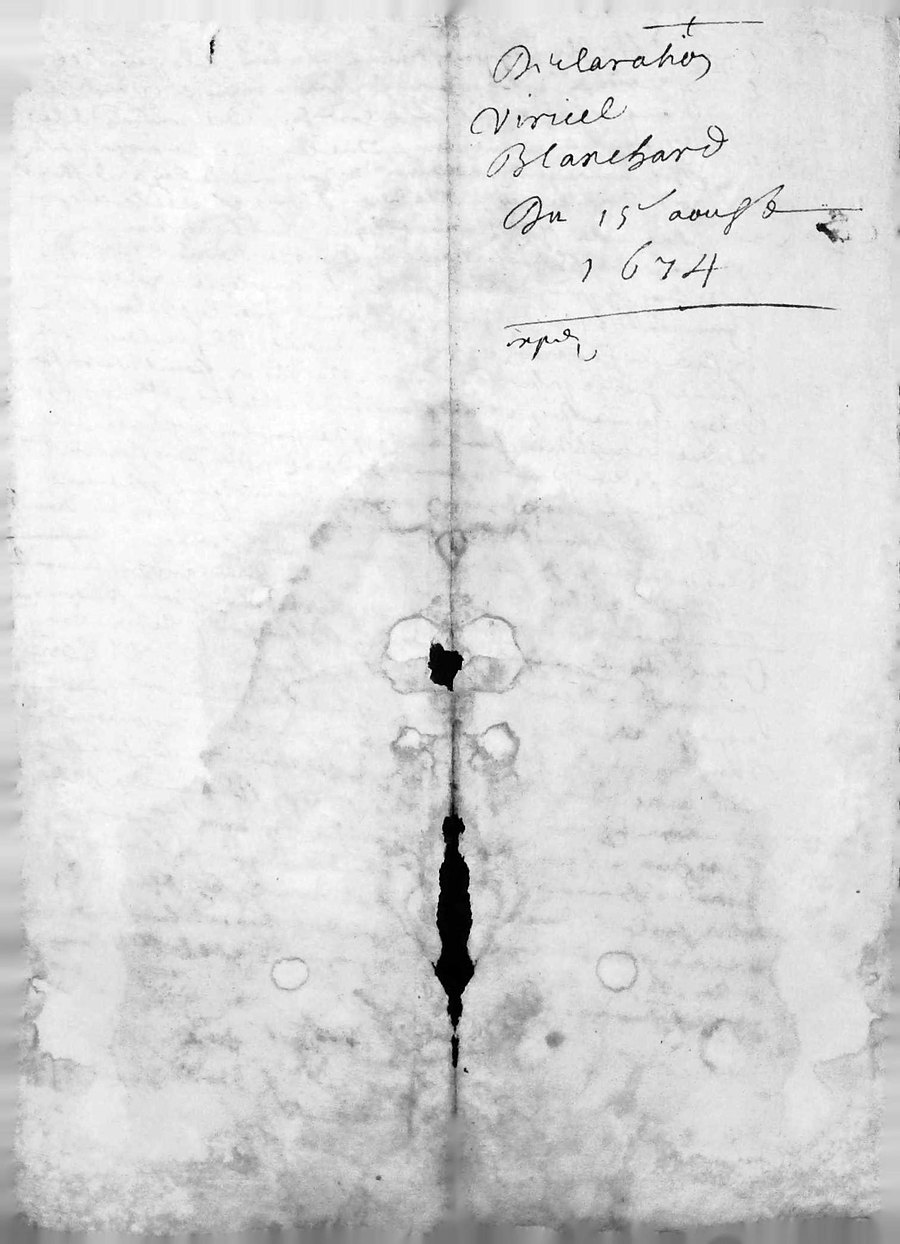 Declaration
Viricel
Blanchard
Du 15 aougst
1674